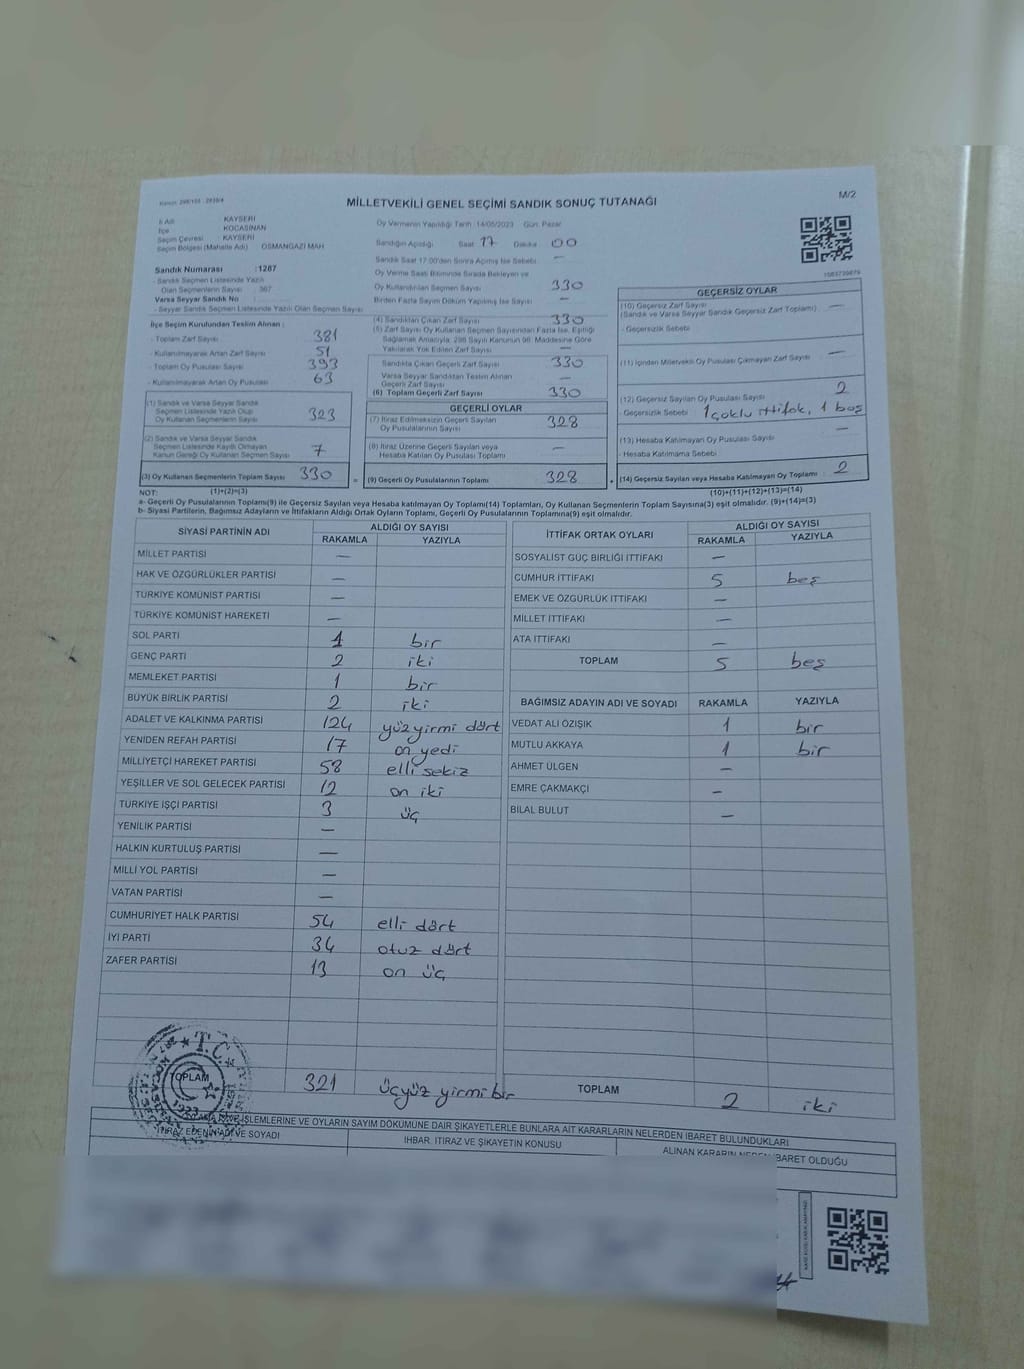 Kanun: 298/105 - 2839/4
MİLLETVEKİLİ GENEL SEÇİMİ SANDIK SONUÇ TUTANAĞI
M/2
İl Adı KAYSERİ
İlçe KOCASİNAN
Seçim Çevresi KAYSERİ
Seçim Bölgesi (Mahalle Adı) OSMANGAZİ MAH
Sandık Numarası :1287
- Sandık Seçmen Listesinde Yazılı
Olan Seçmenlerin Sayısı : 367
Varsa Seyyar Sandık No
- Seyyar Sandık Seçmen Listesinde Yazılı Olan Seçmen Sayısı
İlçe Seçim Kurulundan Teslim Alınan :
- Toplam Zarf Sayısı 381
- Kullanılmayarak Artan Zarf Sayısı 51
- Toplam Oy Pusulası Sayısı 393
- Kullanılmayarak Artan Oy Pusulası 63
(1) Sandık ve Varsa Seyyar Sandık
Seçmen Listesinde Yazılı Olup
Oy Kullanan Seçmenlerin Sayısı 323
(2) Sandık ve Varsa Seyyar Sandık
Seçmen Listesinde Kayıtlı Olmayan
Kanun Gereği Oy Kullanan Seçmen Sayısı 7
(3) Oy Kullanan Seçmenlerin Toplam Sayısı 330 =
(1)+(2)=(3)
Oy Vermenin Yapıldığı Tarih : 14/05/2023 Gün: Pazar
Sandığın Açıldığı Saat 17 Dakika 00
Sandık Saat 17:00'den Sonra Açılmış İse Sebebi —
Oy Verme Saati Bitiminde Sırada Bekleyen ve
Oy Kullandırılan Seçmen Sayısı 330
Birden Fazla Sayım Döküm Yapılmış İse Sayısı —
(4) Sandıktan Çıkan Zarf Sayısı 330
(5) Zarf Sayısı Oy Kullanan Seçmen Sayısından Fazla İse, Eşitliği
Sağlamak Amacıyla; 298 Sayılı Kanunun 98. Maddesine Göre
Yakılarak Yok Edilen Zarf Sayısı —
Sandıkta Çıkan Geçerli Zarf Sayısı 330
Varsa Seyyar Sandıktan Teslim Alınan
Geçerli Zarf Sayısı —
(6) Toplam Geçerli Zarf Sayısı 330
GEÇERLİ OYLAR
(7) İtiraz Edilmeksizin Geçerli Sayılan
Oy Pusulalarının Sayısı 328
(8) İtiraz Üzerine Geçerli Sayılan veya
Hesaba Katılan Oy Pusulası Toplamı —
(9) Geçerli Oy Pusulalarının Toplamı 328 +
GEÇERSİZ OYLAR
(10) Geçersiz Zarf Sayısı
(Sandık ve Varsa Seyyar Sandık Geçersiz Zarf Toplamı) —
- Geçersizlik Sebebi
(11) İçinden Milletvekili Oy Pusulası Çıkmayan Zarf Sayısı —
(12) Geçersiz Sayılan Oy Pusulası Sayısı 2
- Geçersizlik Sebebi 1 çoklu ittifak, 1 boş
(13) Hesaba Katılmayan Oy Pusulası Sayısı —
- Hesaba Katılmama Sebebi
(14) Geçersiz Sayılan veya Hesaba Katılmayan Oy Toplamı 2
(10)+(11)+(12)+(13)=(14)
NOT:
a- Geçerli Oy Pusulalarının Toplamı(9) ile Geçersiz Sayılan veya Hesaba katılmayan Oy Toplamı(14) Toplamları, Oy Kullanan Seçmenlerin Toplam Sayısına(3) eşit olmalıdır. (9)+(14)=(3)
b- Siyasi Partilerin, Bağımsız Adayların ve İttifakların Aldığı Ortak Oyların Toplamı, Geçerli Oy Pusulalarının Toplamına(9) eşit olmalıdır.
SİYASİ PARTİNİN ADI ALDIĞI OY SAYISI
RAKAMLA YAZIYLA
MİLLET PARTİSİ —
HAK VE ÖZGÜRLÜKLER PARTİSİ —
TÜRKİYE KOMÜNİST PARTİSİ —
TÜRKİYE KOMÜNİST HAREKETİ —
SOL PARTİ 1 bir
GENÇ PARTİ 2 iki
MEMLEKET PARTİSİ 1 bir
BÜYÜK BİRLİK PARTİSİ 2 iki
ADALET VE KALKINMA PARTİSİ 124 yüzyirmi dört
YENİDEN REFAH PARTİSİ 17 on yedi
MİLLİYETÇİ HAREKET PARTİSİ 58 elli sekiz
YEŞİLLER VE SOL GELECEK PARTİSİ 12 on iki
TÜRKİYE İŞÇİ PARTİSİ 3 üç
YENİLİK PARTİSİ —
HALKIN KURTULUŞ PARTİSİ —
MİLLİ YOL PARTİSİ —
VATAN PARTİSİ —
CUMHURİYET HALK PARTİSİ 54 elli dört
İYİ PARTİ 34 otuz dört
ZAFER PARTİSİ 13 on üç
TOPLAM 321 üçyüz yirmi bir
İTTİFAK ORTAK OYLARI ALDIĞI OY SAYISI
RAKAMLA YAZIYLA
SOSYALİST GÜÇ BİRLİĞİ İTTİFAKI —
CUMHUR İTTİFAKI 5 beş
EMEK VE ÖZGÜRLÜK İTTİFAKI —
MİLLET İTTİFAKI —
ATA İTTİFAKI —
TOPLAM 5 beş
BAĞIMSIZ ADAYIN ADI VE SOYADI RAKAMLA YAZIYLA
VEDAT ALİ ÖZIŞIK 1 bir
MUTLU AKKAYA 1 bir
AHMET ÜLGEN —
EMRE ÇAKMAKÇI —
BİLAL BULUT —
TOPLAM 2 iki
T.C.
İŞLEMLERİNE VE OYLARIN SAYIM DÖKÜMÜNE DAİR ŞİKAYETLERLE BUNLARA AİT KARARLARIN NELERDEN İBARET BULUNDUKLARI
İTİRAZ EDENİN ADI VE SOYADI
İHBAR, İTİRAZ VE ŞİKAYETİN KONUSU
ALINAN KARARIN NEDEN İBARET OLDUĞU